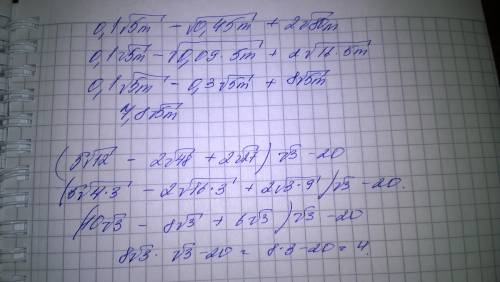 0,1√5m - √0,45m + 2√80m
0,1√5m - √0,09·5m + 2√16·5m
0,1√5m - 0,3√5m + 8√5m
7,8√5m
(5√12 - 2√48 + 2√27)√3 - 20
(5√4·3 - 2√16·3 + 2√3·9)√3 - 20.
(10√3 - 8√3 + 6√3)√3 - 20
8√3·√3 - 20 = 8·3 - 20 = 4.